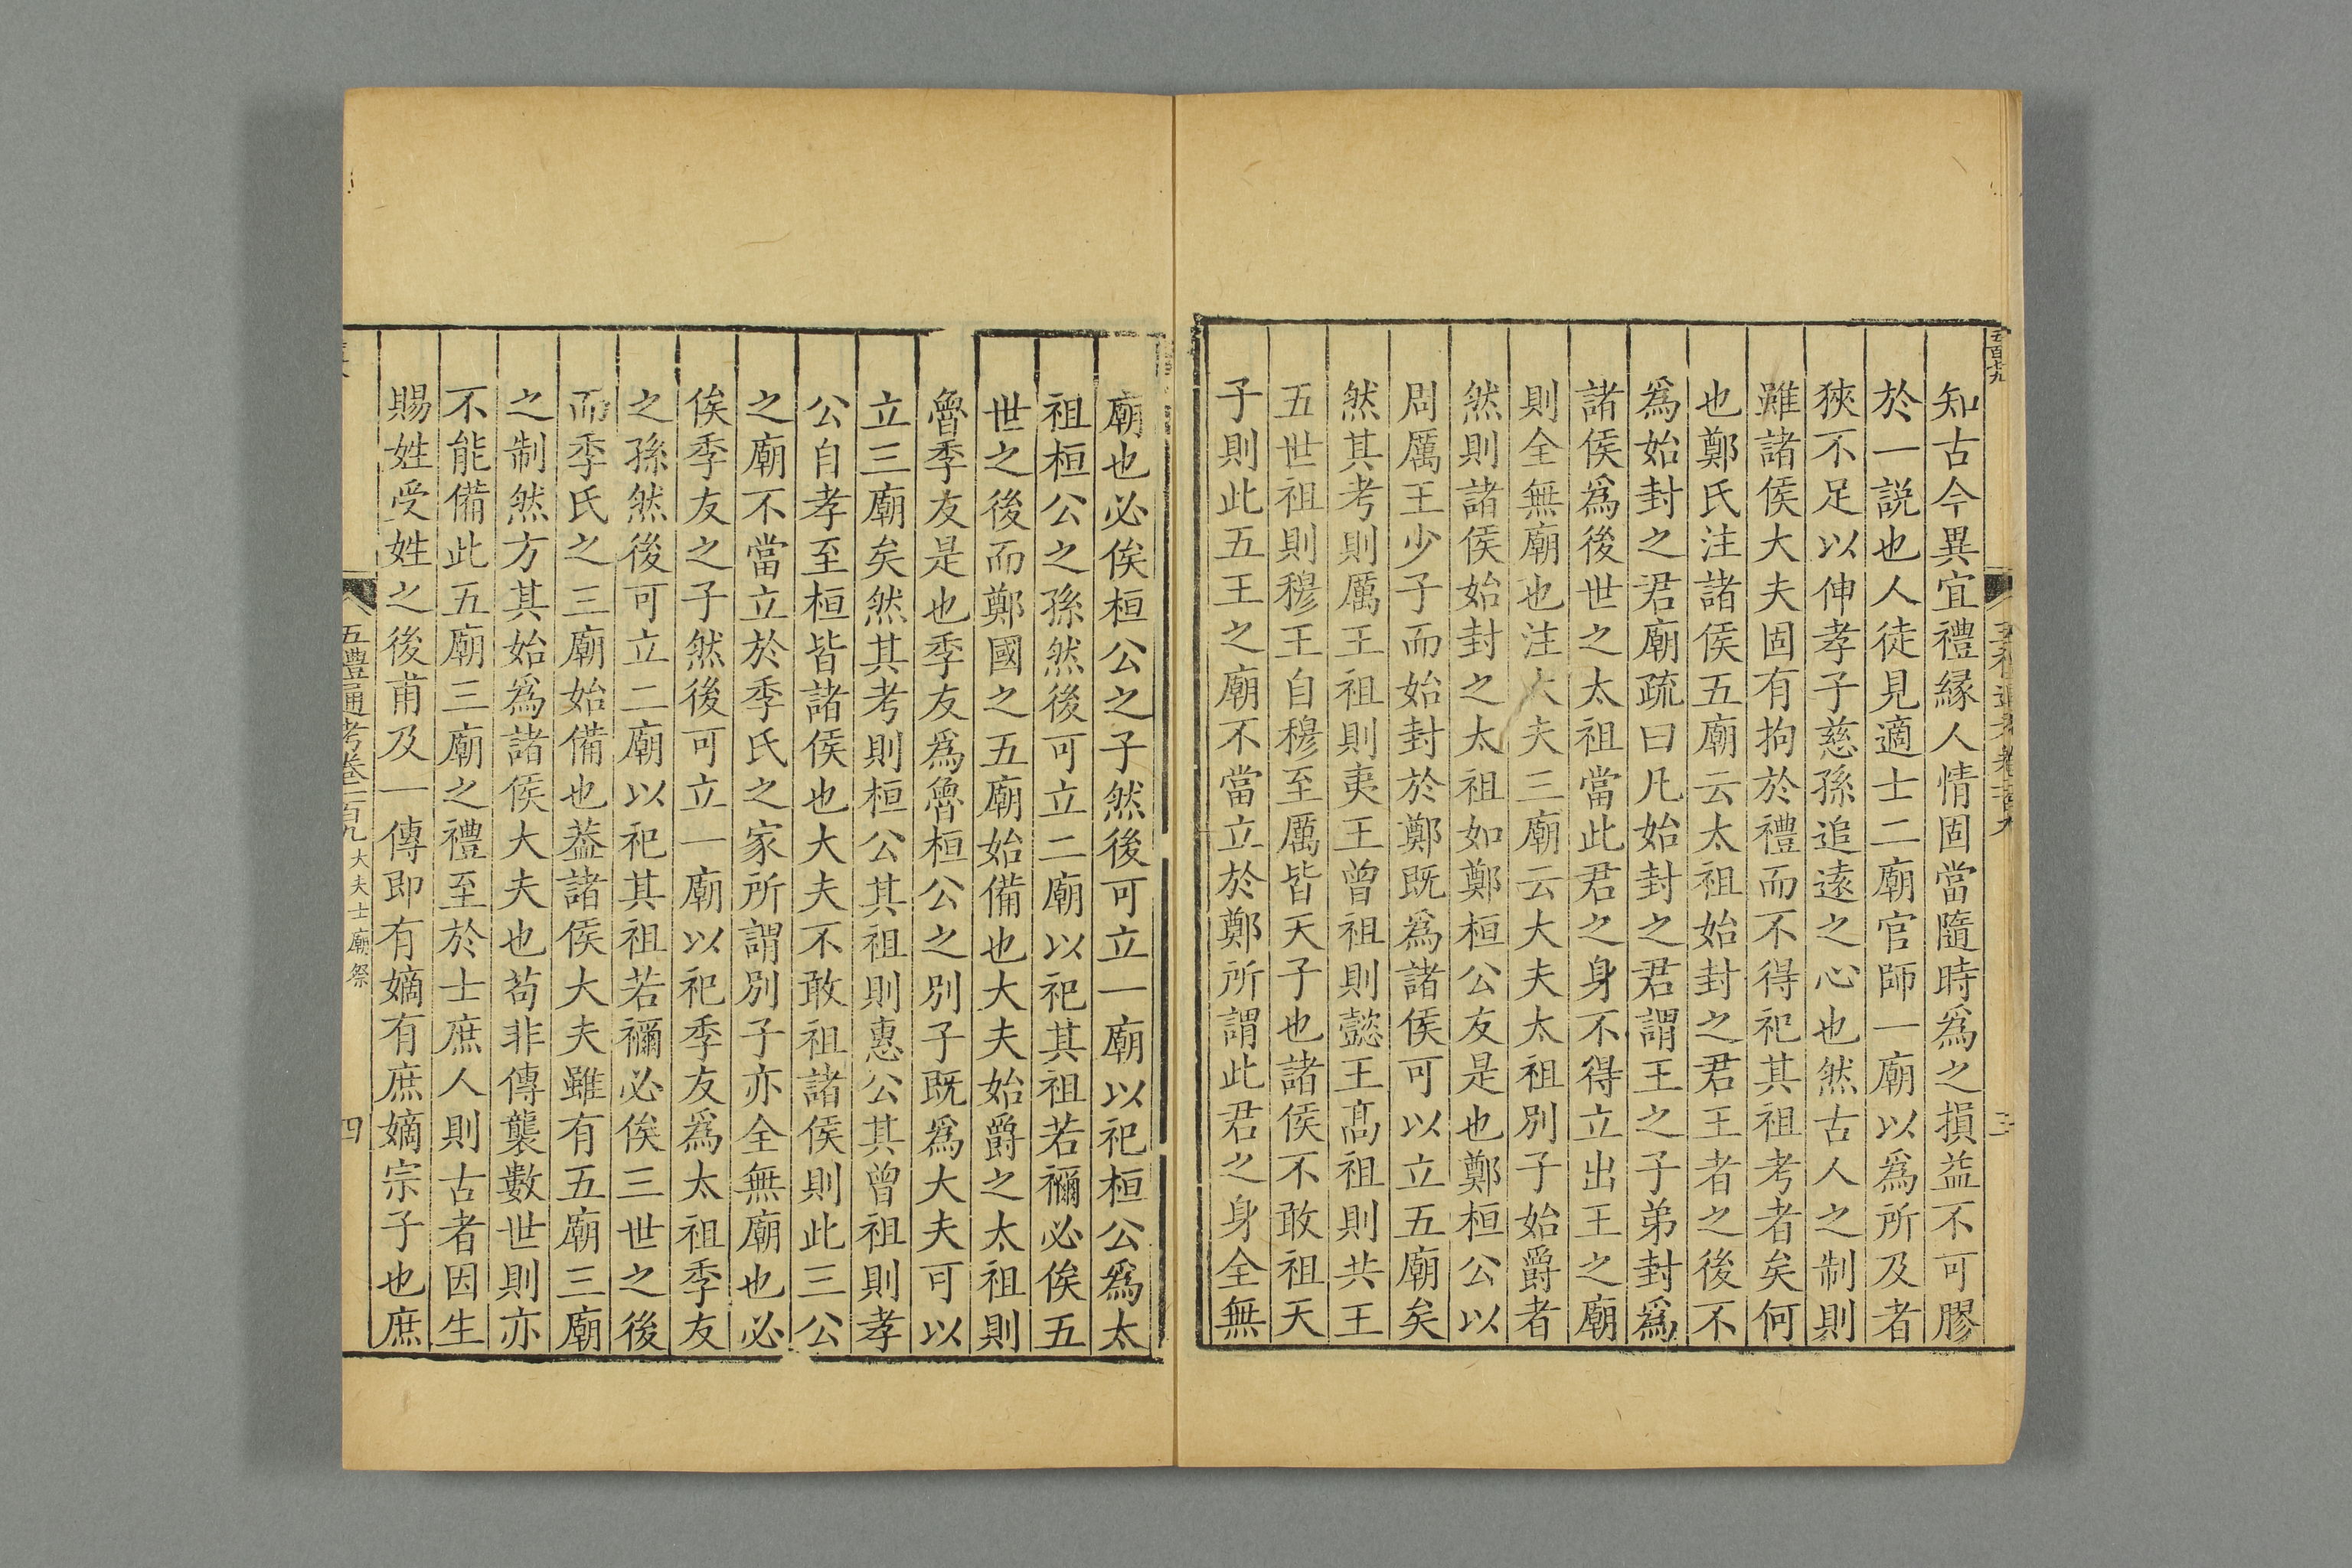 五百七九
知古今異宜禮縁人情固當隨時爲之損益不可膠
於一説也人徒見適士二廟官師一廟以爲所及者
狹不足以伸孝子慈孫追逺之心也然古人之制則
雖諸侯大夫固有拘於禮而不得祀其祖考者矣何
也鄭氏注諸侯五廟云太祖始封之君王者之後不
爲始封之君廟疏曰凡始封之君謂王之子弟封爲
諸侯爲後世之太祖當此君之身不得立出王之廟
則全無廟也注大夫三廟云大夫太祖別子始爵者
然則諸侯始封之太祖如鄭桓公友是也鄭桓公以
周厲王少子而始封於鄭既爲諸侯可以立五廟矣
然其考則厲王祖則夷王曾祖則懿王髙祖則共王
五世祖則穆王自穆至厲皆天子也諸侯不敢祖天
子則此五王之廟不當立於鄭所謂此君之身全無
廟也必俟桓公之子然後可立一廟以祀桓公爲太
祖桓公之孫然後可立二廟以祀其祖若禰必俟五
世之後而鄭國之五廟始備也大夫始爵之太祖則
魯季友是也季友爲魯桓公之別子既爲大夫可以
立三廟矣然其考則桓公其祖則惠公其曾祖則孝
公自孝至桓皆諸侯也大夫不敢祖諸侯則此三公
之廟不當立於季氏之家所謂別子亦全無廟也必
俟季友之子然後可立一廟以祀季友爲太祖季友
之孫然後可立二廟以祀其祖若禰必俟三世之後
而季氏之三廟始備也葢諸侯大夫雖有五廟三廟
之制然方其始爲諸侯大夫也苟非傳襲數世則亦
不能備此五廟三廟之禮至於士庶人則古者因生
賜姓受姓之後甫及一傳即有嫡有庶嫡宗子也庶
五禮通考卷一百九 大夫士廟祭 四